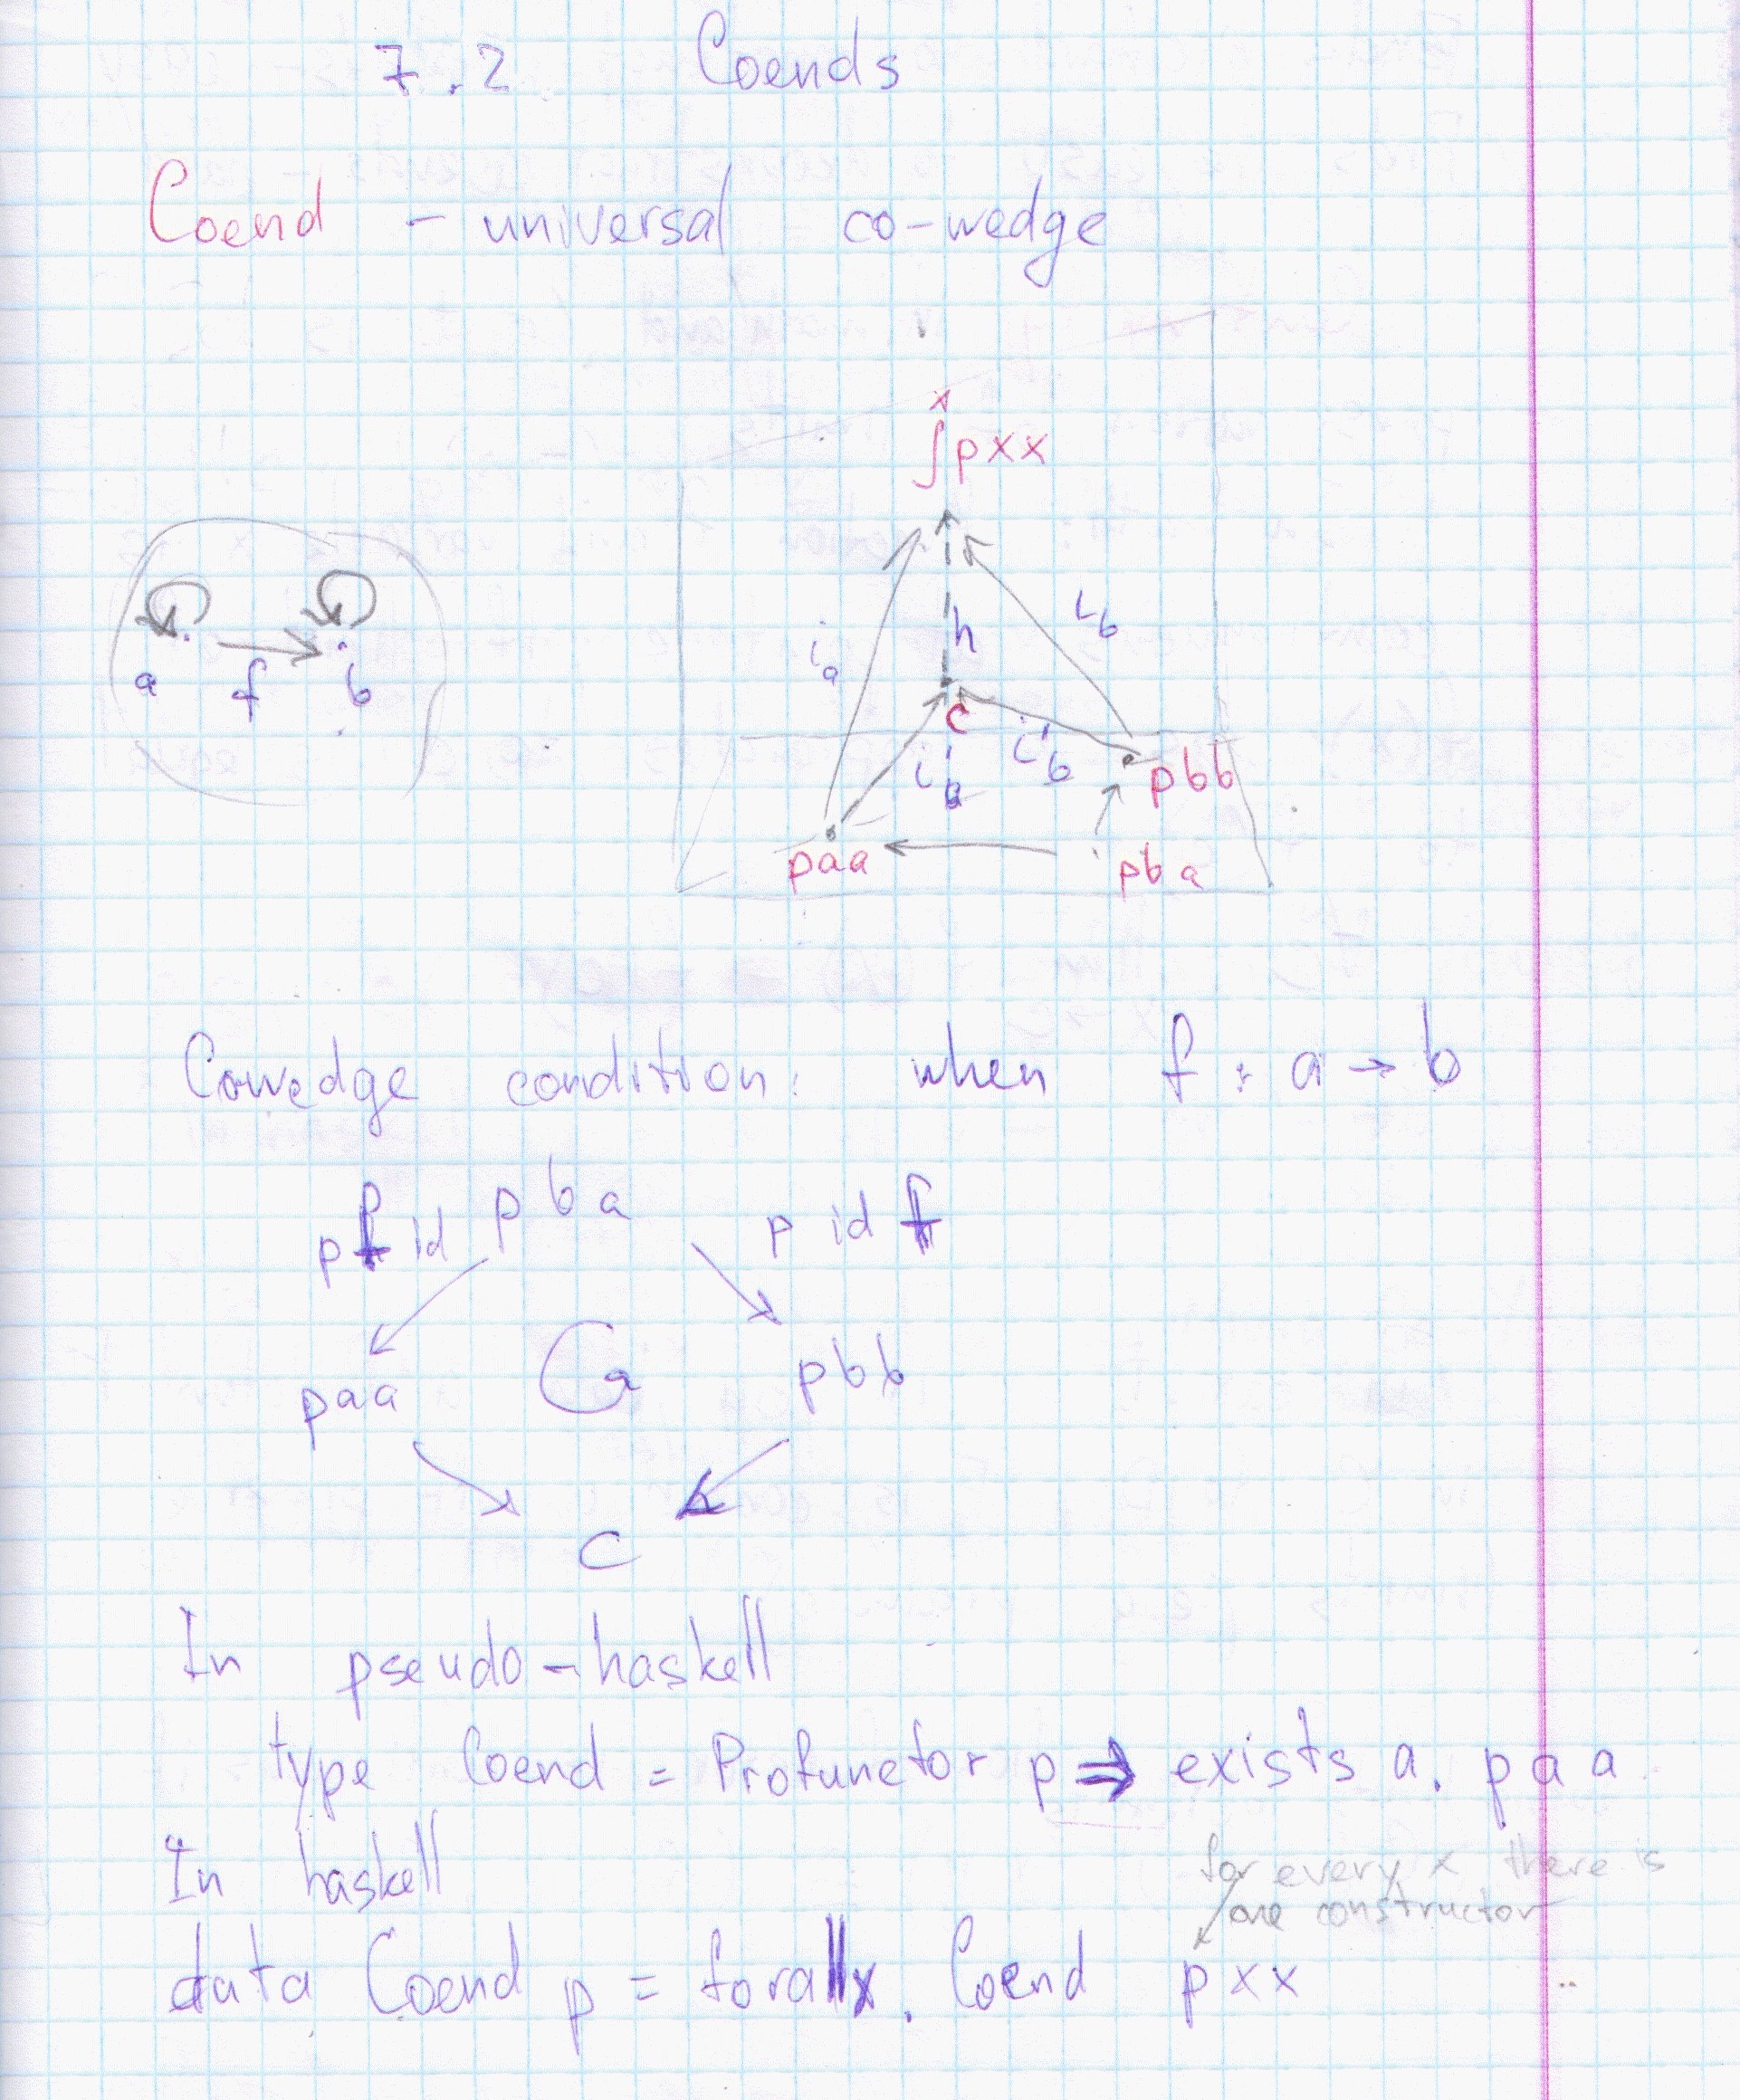 7.2 Coends
Coend - universal co-wedge
x
∫pxx
i_a
h
i_b
a f b
c
i'_a
i'_b
pbb
paa
pba
Cowedge condition: when f : a → b
p f id
pba
p id f
paa
pbb
c
In pseudo-haskell
type Coend = Profunctor p ⇒ exists a. paa
In haskell
for every x there is
one constructor
data Coend p = forall x. Coend pxx